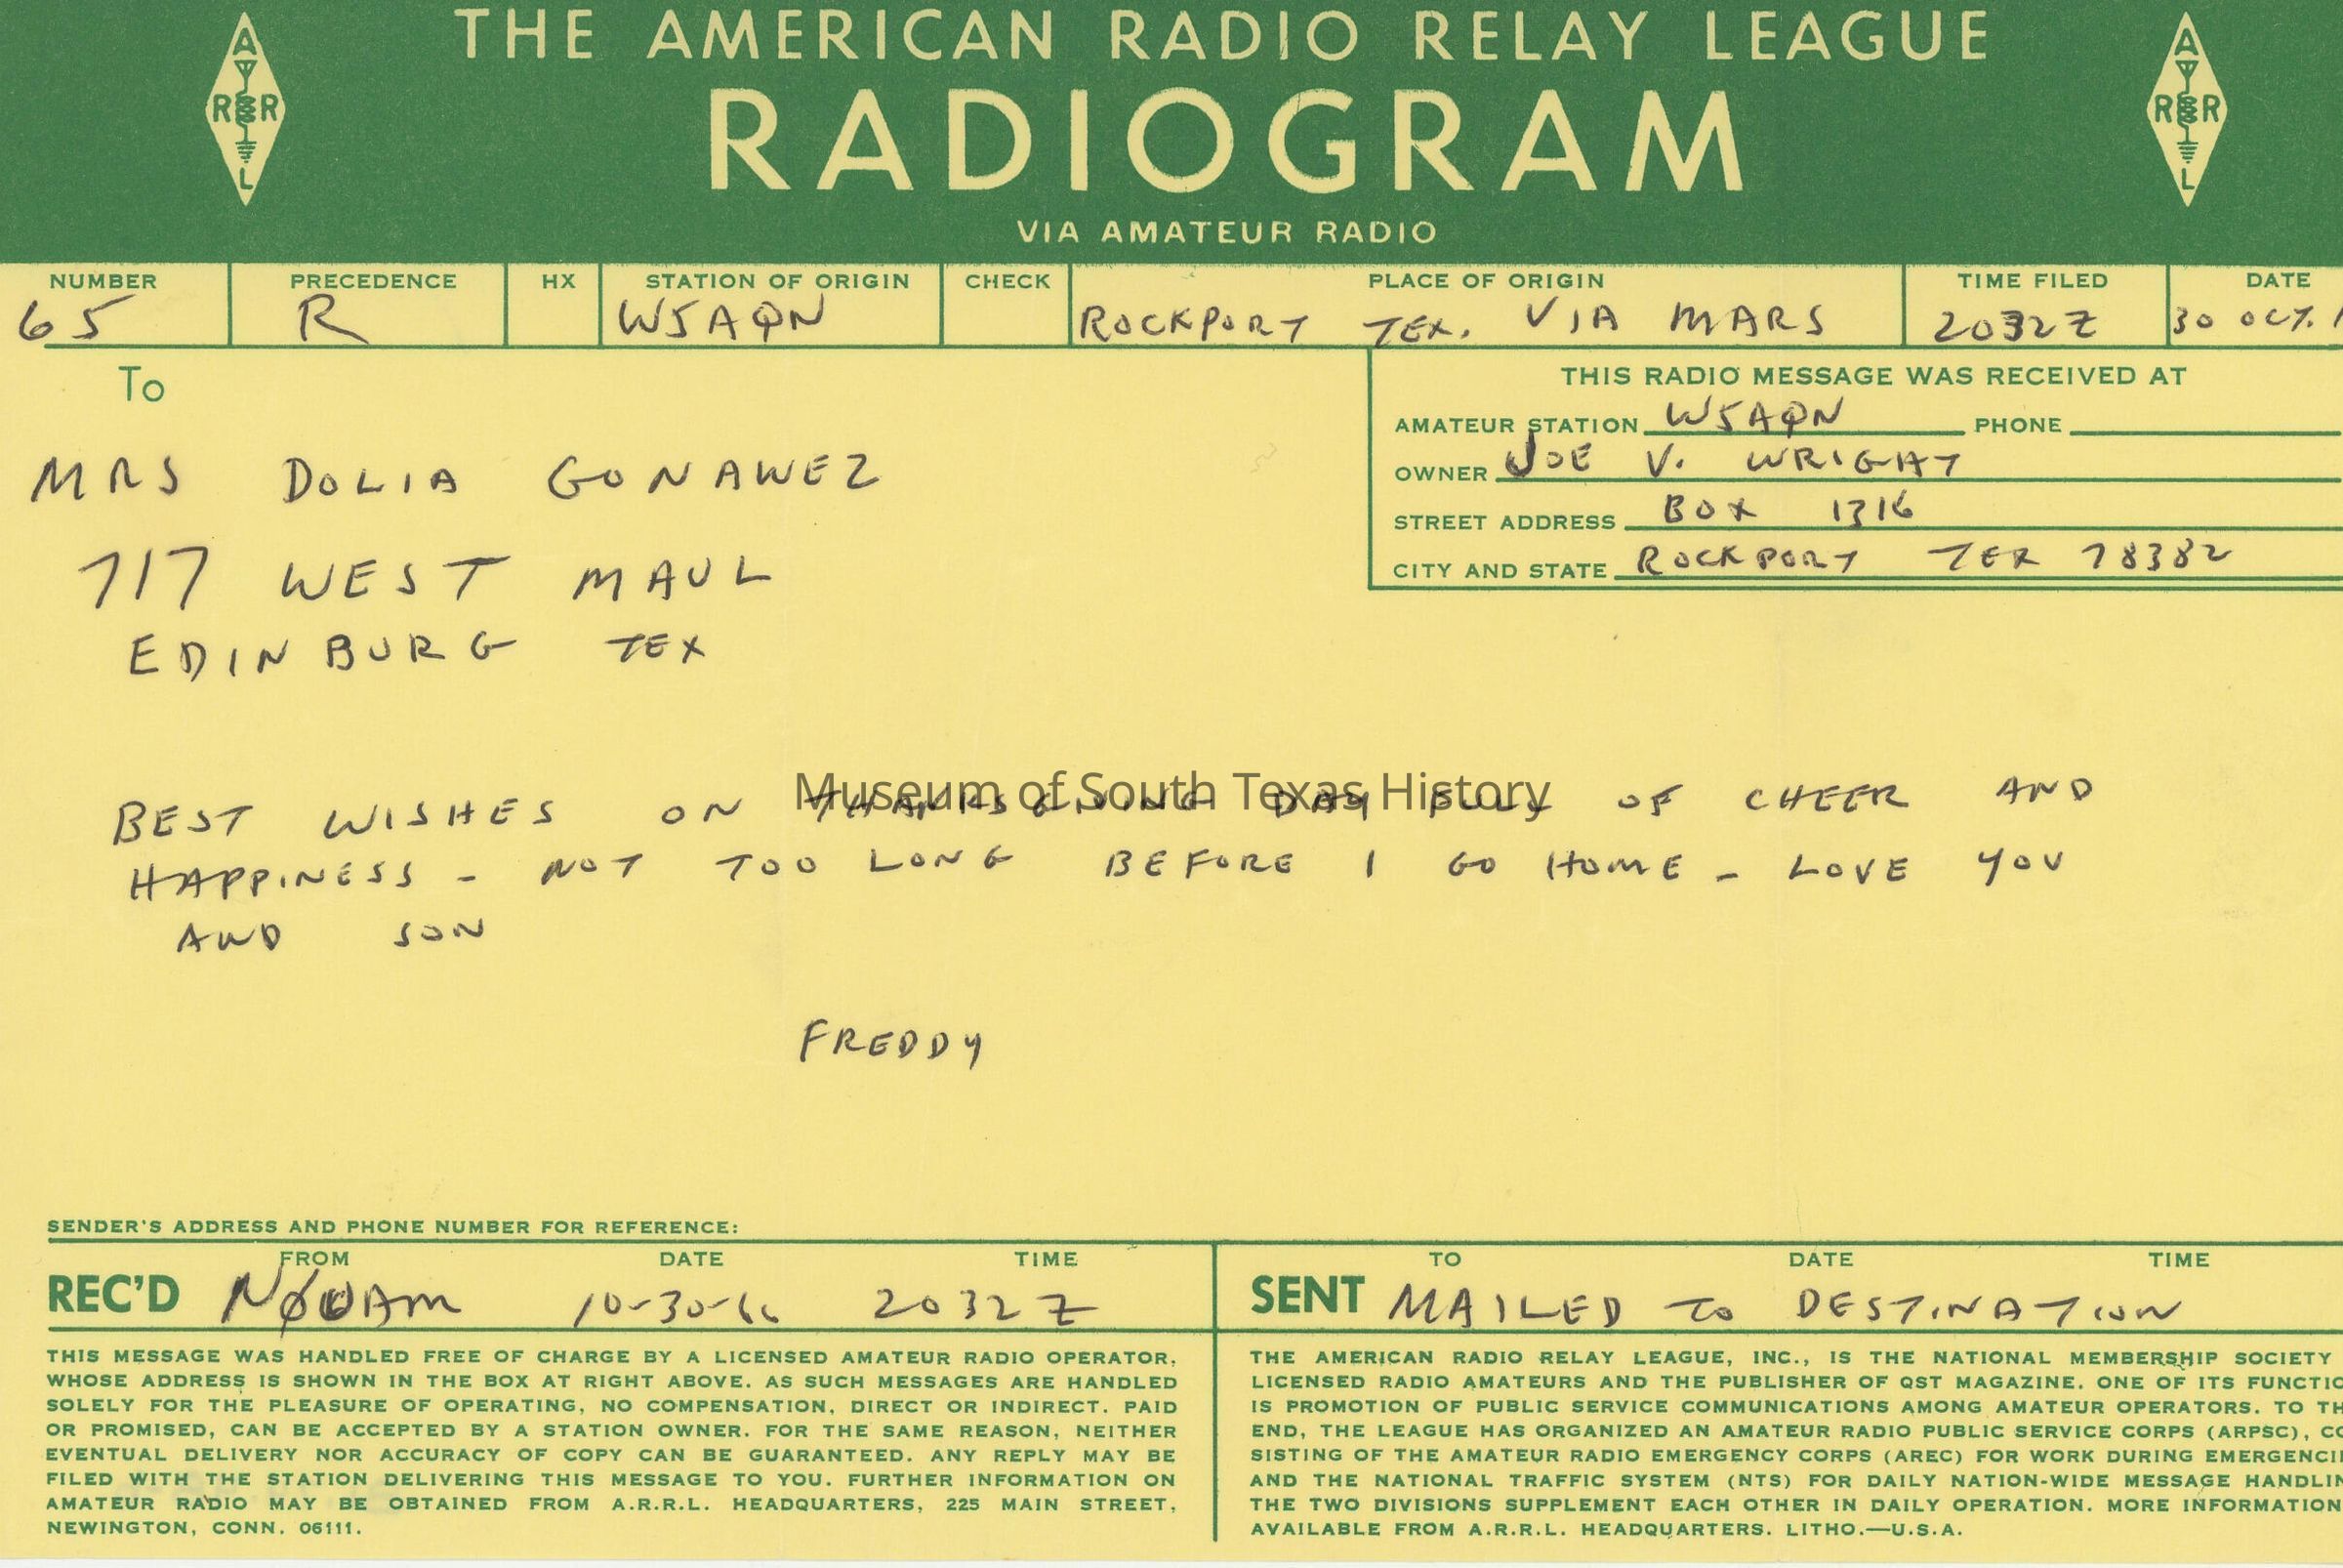 THE AMERICAN RADIO RELAY LEAGUE
RADIOGRAM
VIA AMATEUR RADIO
A
R R
L
A
R R
L
NUMBER PRECEDENCE HX STATION OF ORIGIN CHECK PLACE OF ORIGIN TIME FILED DATE
65 R W5AQN ROCKPORT TEX. VIA MARS 2032Z 30 OCT.
To
THIS RADIO MESSAGE WAS RECEIVED AT
AMATEUR STATION W5AQN PHONE
OWNER JOE V. WRIGHT
STREET ADDRESS BOX 1316
CITY AND STATE ROCKPORT TEX 78382
MRS DOLIA GONAWEZ
717 WEST MAUL
EDINBURG TEX
Museum of South Texas History
BEST WISHES ON THANKSGIVING DAY FULL OF CHEER AND
HAPPINESS - NOT TOO LONG BEFORE I GO HOME - LOVE YOU
AND SON
FREDDY
SENDER'S ADDRESS AND PHONE NUMBER FOR REFERENCE:
FROM DATE TIME
REC'D 10-30-66 2032Z
TO DATE TIME
SENT MAILED TO DESTINATION
THIS MESSAGE WAS HANDLED FREE OF CHARGE BY A LICENSED AMATEUR RADIO OPERATOR,
WHOSE ADDRESS IS SHOWN IN THE BOX AT RIGHT ABOVE. AS SUCH MESSAGES ARE HANDLED
SOLELY FOR THE PLEASURE OF OPERATING, NO COMPENSATION, DIRECT OR INDIRECT. PAID
OR PROMISED, CAN BE ACCEPTED BY A STATION OWNER. FOR THE SAME REASON, NEITHER
EVENTUAL DELIVERY NOR ACCURACY OF COPY CAN BE GUARANTEED. ANY REPLY MAY BE
FILED WITH THE STATION DELIVERING THIS MESSAGE TO YOU. FURTHER INFORMATION ON
AMATEUR RADIO MAY BE OBTAINED FROM A.R.R.L. HEADQUARTERS, 225 MAIN STREET,
NEWINGTON, CONN. 06111.
THE AMERICAN RADIO RELAY LEAGUE, INC., IS THE NATIONAL MEMBERSHIP SOCIETY
LICENSED RADIO AMATEURS AND THE PUBLISHER OF QST MAGAZINE. ONE OF ITS FUNCTIO
IS PROMOTION OF PUBLIC SERVICE COMMUNICATIONS AMONG AMATEUR OPERATORS. TO TH
END, THE LEAGUE HAS ORGANIZED AN AMATEUR RADIO PUBLIC SERVICE CORPS (ARPSC), CO
SISTING OF THE AMATEUR RADIO EMERGENCY CORPS (AREC) FOR WORK DURING EMERGENCI
AND THE NATIONAL TRAFFIC SYSTEM (NTS) FOR DAILY NATION-WIDE MESSAGE HANDLIN
THE TWO DIVISIONS SUPPLEMENT EACH OTHER IN DAILY OPERATION. MORE INFORMATION
AVAILABLE FROM A.R.R.L. HEADQUARTERS. LITHO.—U.S.A.